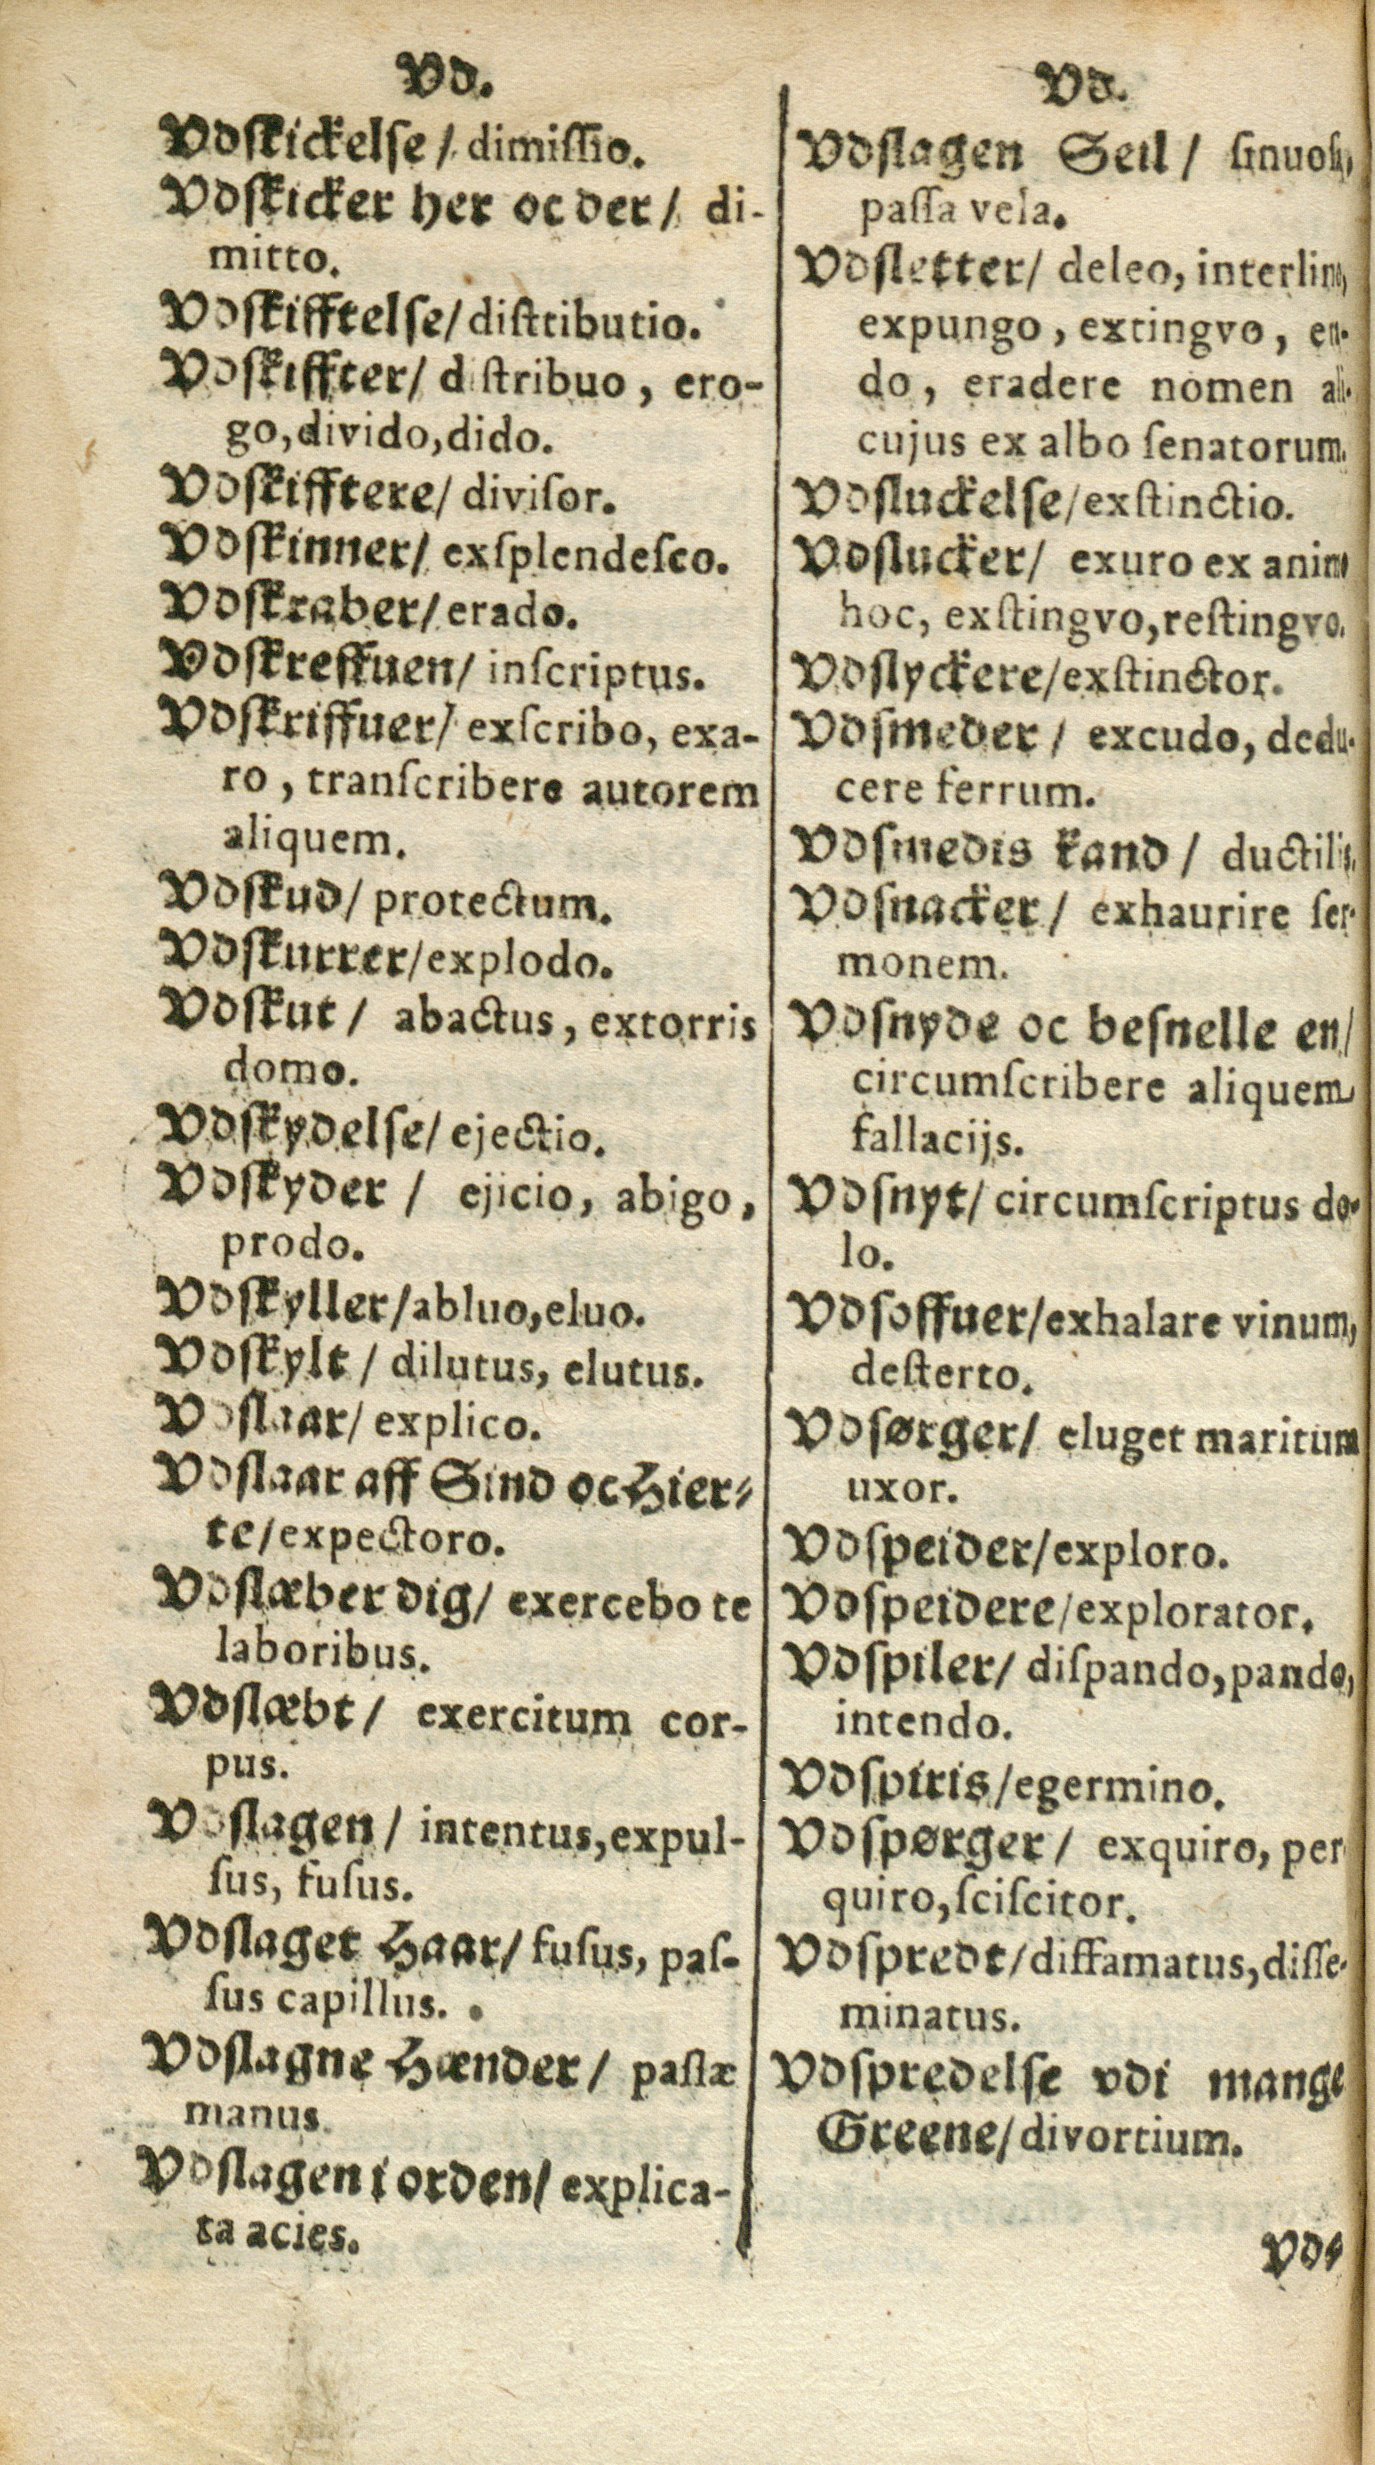 Vd.
Vdſkickelſe / dimiſſio.
Vdſkicker her oc der / di-
mitto.
Vdſkifftelſe / diſttibutio.
Vdſkiffter / diſtribuo, ero-
go, divido, dido.
Vdſkifftere / diviſor.
Vdſkinner / exſplendeſco.
Vdſkraber / erado.
Vdſkreffuen / inſcriptus.
Vdſkriffuer / exſcribo, exa-
ro, tranſcribere autorem
aliquem.
Vdſkud / protectum.
Vdſkurrer / explodo.
Vdſkut / abactus, extorris
domo.
Vdſkydelſe / ejectio.
Vdſkyder / ejicio, abigo,
prodo.
Vdſkyller / abluo, eluo.
Vdſkylt / dilutus, elutus.
Vdſlaar / explico.
Vdſlaar aff Sind oc Hier-
te / expectoro.
Vdſlæber dig / exercebo te
laboribus.
Vdſlæbt / exercitum cor-
pus.
Vdſlagen / intentus, expul-
ſus, fuſus.
Vdſlaget Haar / fuſus, paſ-
ſus capillus.
Vdſlagne Hænder / paſſæ
manus.
Vdſlagen i orden / explica-
ta acies.
Vd.
Vdſlagen Seil / ſinuoſa,
paſſa vela.
Vdſletter / deleo, interlino,
expungo, extingvo,
do, eradere nomen ali-
cujus ex albo ſenatorum.
Vdſluckelſe / exſtinctio.
Vdſlucker / exuro ex animo
hoc, exſtingvo, reſtingvo.
Vdſlyckere / exſtinctor.
Vdſmeder / excudo, dedu-
cere ferrum.
Vdſmedis kand / ductilis.
Vdſnacker / exhaurire ſer-
monem.
Vdſnyde oc beſnelle en /
circumſcribere aliquem
fallacijs.
Vdſnyt / circumſcriptus do-
lo.
Vdſoffuer / exhalare vinum,
deſterto.
Vdſørger / eluget maritum
uxor.
Vdſpeider / exploro.
Vdſpeidere / explorator.
Vdſpiler / diſpando, pando,
intendo.
Vdſpiris / egermino.
Vdſpørger / exquiro, per
quiro, ſciſcitor.
Vdſpredt / diffamatus, diſſe-
minatus.
Vdſpredelſe vdi mange
Greene / divortium.
Vd-